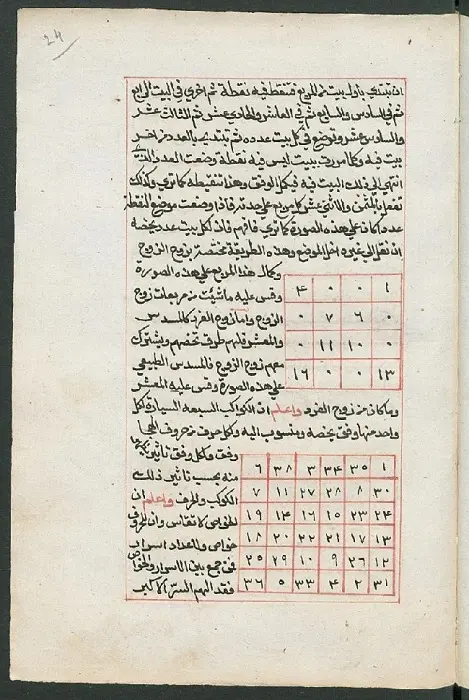 24
ان تبتدي باول بيت من المربع فتنقط فيه نقطة ثم اخري في البيت الرابع
ثم في السادس والسابع ثم في العاشر والحادي عشر ثم الثالث عشر
والسادس عشر وتوضع في كل بيت عدده ثم تبتدي بالعدد من اخر
بيت فيه وكلما مررت ببيت ليس فيه نقطة وضعت العدد الذي
انتهي الي ذلك البيت فيه فيكمل الوفق وهذا تنقيطه كما تري وكذلك
تفعل بالمثمن والاثني عشر كل مربع علي حدته فاذا وضعت موضع النقط
عددا كان علي هذه الصورة كما تري فافهم فان لكل بيت عدد يخصه
ان نقل الي غيره اختل الوضع وهذه الطريقة مختصة بزوج الزوج
وكمال هذا المربع علي هذه الصورة
وقس عليه ما شئت من مربعات زوج
الزوج واما زوج الفرد كالمسدس
والمعشر فلهم طرق تخصهم ويشترك
معهم زوج الزوج فالمسدس الطبيعي
علي هذه الصورة وقس عليه المعشر
٤ ٠ ٠ ١
٠ ٧ ٦ ٠
٠ ١١ ١٠ ٠
١٦ ٠ ٠ ١٣
وما كان من زوج الفرد واعلم ان الكواكب السبعه السيارة لكل
واحد منها وفق يخصه ومنسوب اليه وكل حرف من حروف الهجا
وفق ولكل وفق تاثير
منه بحسب تاثير ذلك
الكوكب والحرف واعلم ان
الخواص لا تقاس وان للحروف
خواص وللاعداد اسرار
فمن جمع بين الاسرار والخواص
فقد الهم السر الاكبر
٦ ٣٨ ٣ ٣٤ ٣٥ ١
٧ ١١ ٢٧ ٢٨ ٨ ٣٠
١٩ ١٤ ١٦ ١٥ ٢٣ ٢٤
١٨ ٢٠ ٢٢ ٢١ ١٧ ١٣
٢٥ ٢٩ ١٠ ٩ ٢٦ ١٢
٣٦ ٥ ٣٣ ٤ ٢ ٣١